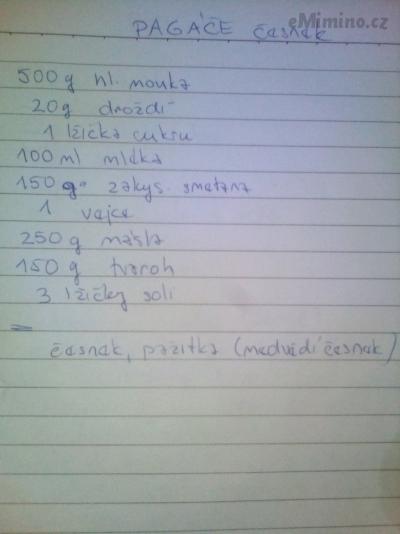 eMimino.cz
PAGÁČE česnak
500 g hl. mouka
20g droždí
1 lžička cukru
100 ml mléka
150 g zakys. smetana
1 vejce
250 g másla
150 g tvaroh
3 lžičky soli
česnak, pažitka (medvědí česnak)